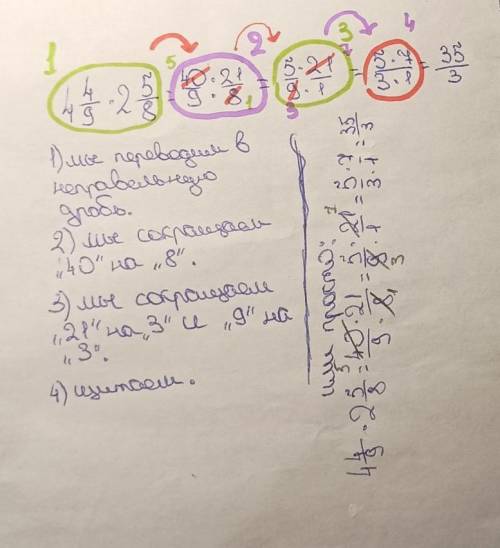 1 2 3 4
4 4/9 · 2 5/8 = 40·21/9·8 = 5·21/9·1 = 5·7/3·1 = 35/3
5 1 7 3
1) мы переводим в
неправельную
дробь.
2) мы сокращаем
„40" на „8".
3) мы сокращаем
„21" на „3" и „9" на
„3".
4) щитаем.
или просто:
4 4/9 · 2 5/8 = 40·21/9·8 = 5·21/9·1 = 5·7/3·1 = 35/3
5 1 7 3